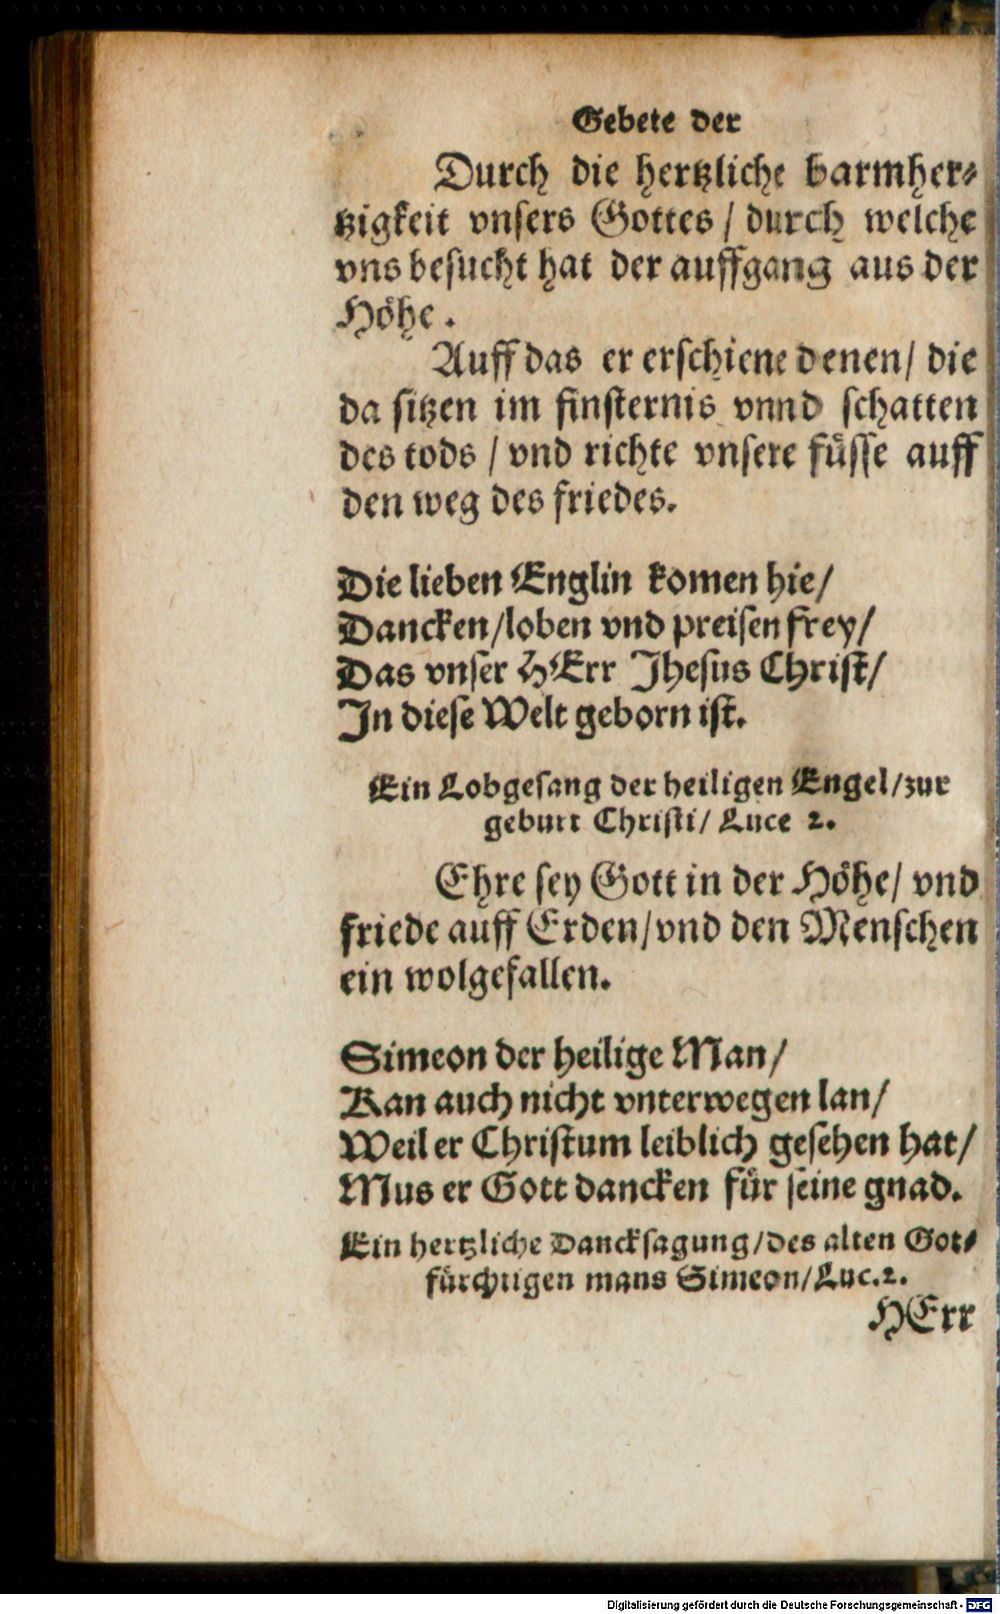 Gebete der
Durch die hertzliche barmher⸗
tzigkeit vnsers Gottes / durch welche
vns besucht hat der auffgang aus der
Höhe.
Auff das er erschiene denen/ die
da sitzen im finsternis vnnd schatten
des tods / vnd richte vnsere füsse auff
den weg des friedes.
Die lieben Englin komen hie/
Dancken/loben vnd preisen frey/
Das vnser HErr Jhesus Christ/
In diese Welt geborn ist.
Ein Lobgesang der heiligen Engel/zur
geburt Christi/ Luce 2.
Ehre sey Gott in der Höhe/ vnd
friede auff Erden/vnd den Menschen
ein wolgefallen.
Simeon der heilige Man/
Kan auch nicht vnterwegen lan/
Weil er Christum leiblich gesehen hat/
Mus er Gott dancken für seine gnad.
Ein hertzliche Dancksagung/des alten Got⸗
fürchtigen mans Simeon/Luc.2.
HErr
Digitalisierung gefördert durch die Deutsche Forschungsgemeinschaft - DFG